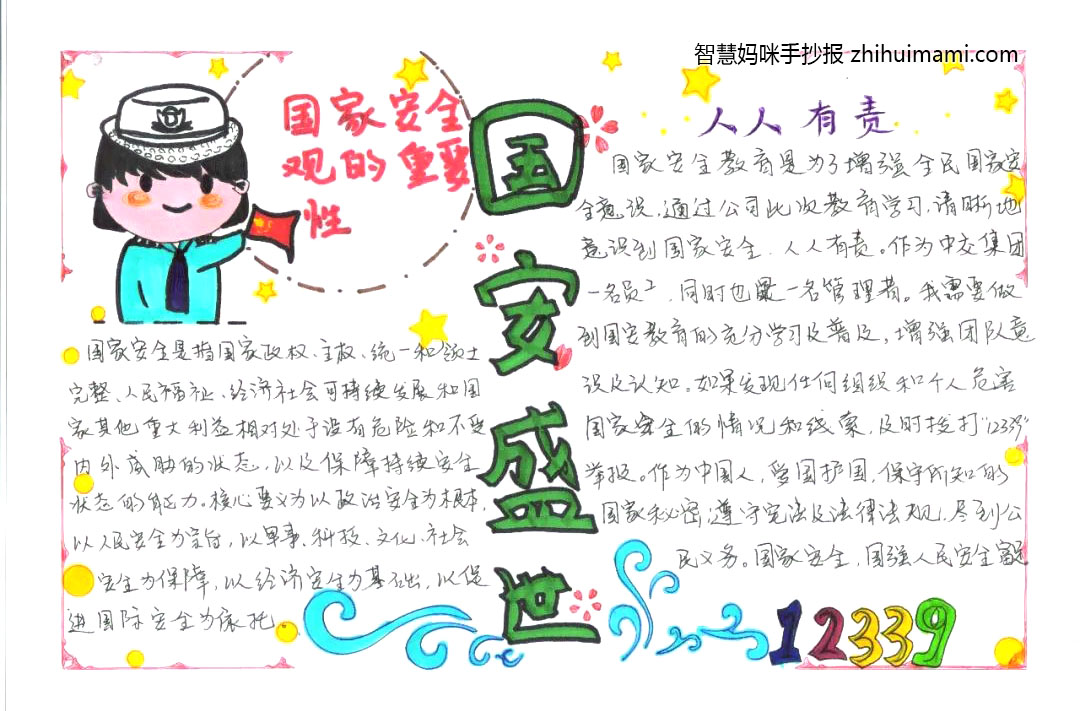 智慧妈咪手抄报 zhihuimami.com
国家安全
观的重要
性
国家安全是指国家政权、主权、统一和领土
完整、人民福祉、经济社会可持续发展和国
家其他重大利益相对处于没有危险和不受
内外威胁的状态，以及保障持续安全
状态的能力。核心要义为以政治安全为根本，
以人民安全为宗旨，以军事、科技、文化、社会
安全为保障，以经济安全为基础，以促
进国际安全为依托
国
安
盛
世
人人有责
国家安全教育是为了增强全民国家安
全意识，通过公司此次教育学习，清晰地
意识到国家安全，人人有责。作为中交集团
一名员工，同时也是一名管理者。我需要做
到国安教育的充分学习及普及，增强团队意
识及认知。如果发现任何组织和个人危害
国家安全的情况和线索，及时拨打"12339"
举报。作为中国人，爱国护国，保守所知的
国家秘密，遵守宪法及法律法规，尽到公
民义务。国家安全，国强人民安全富足
12339